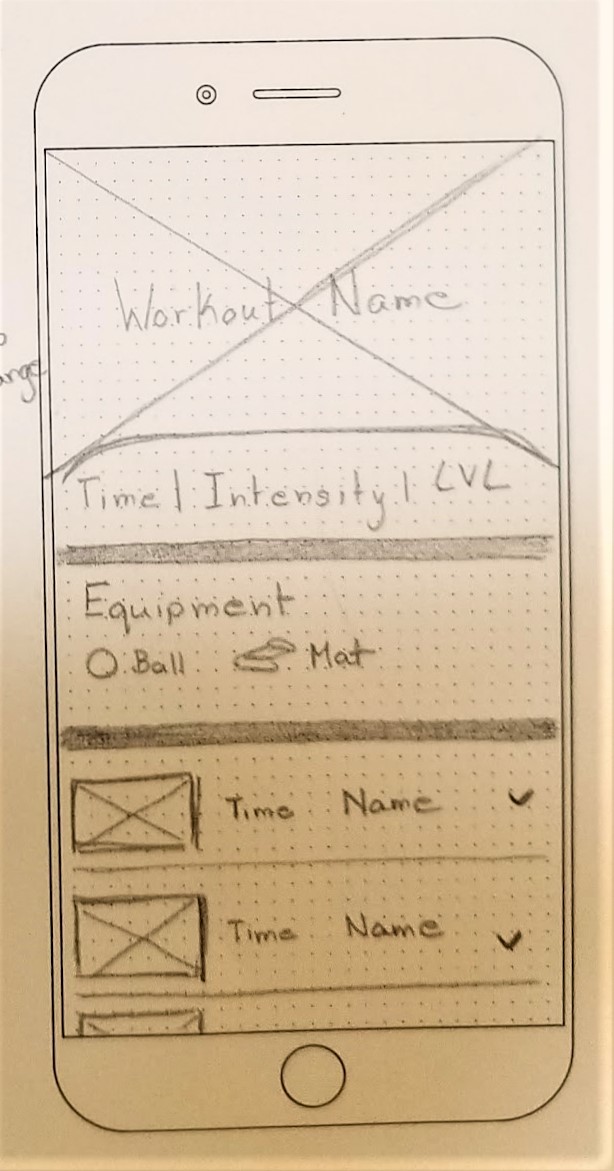 Workout Name
Time | Intensity | LVL
Equipment
Ball Mat
Time Name
Time Name